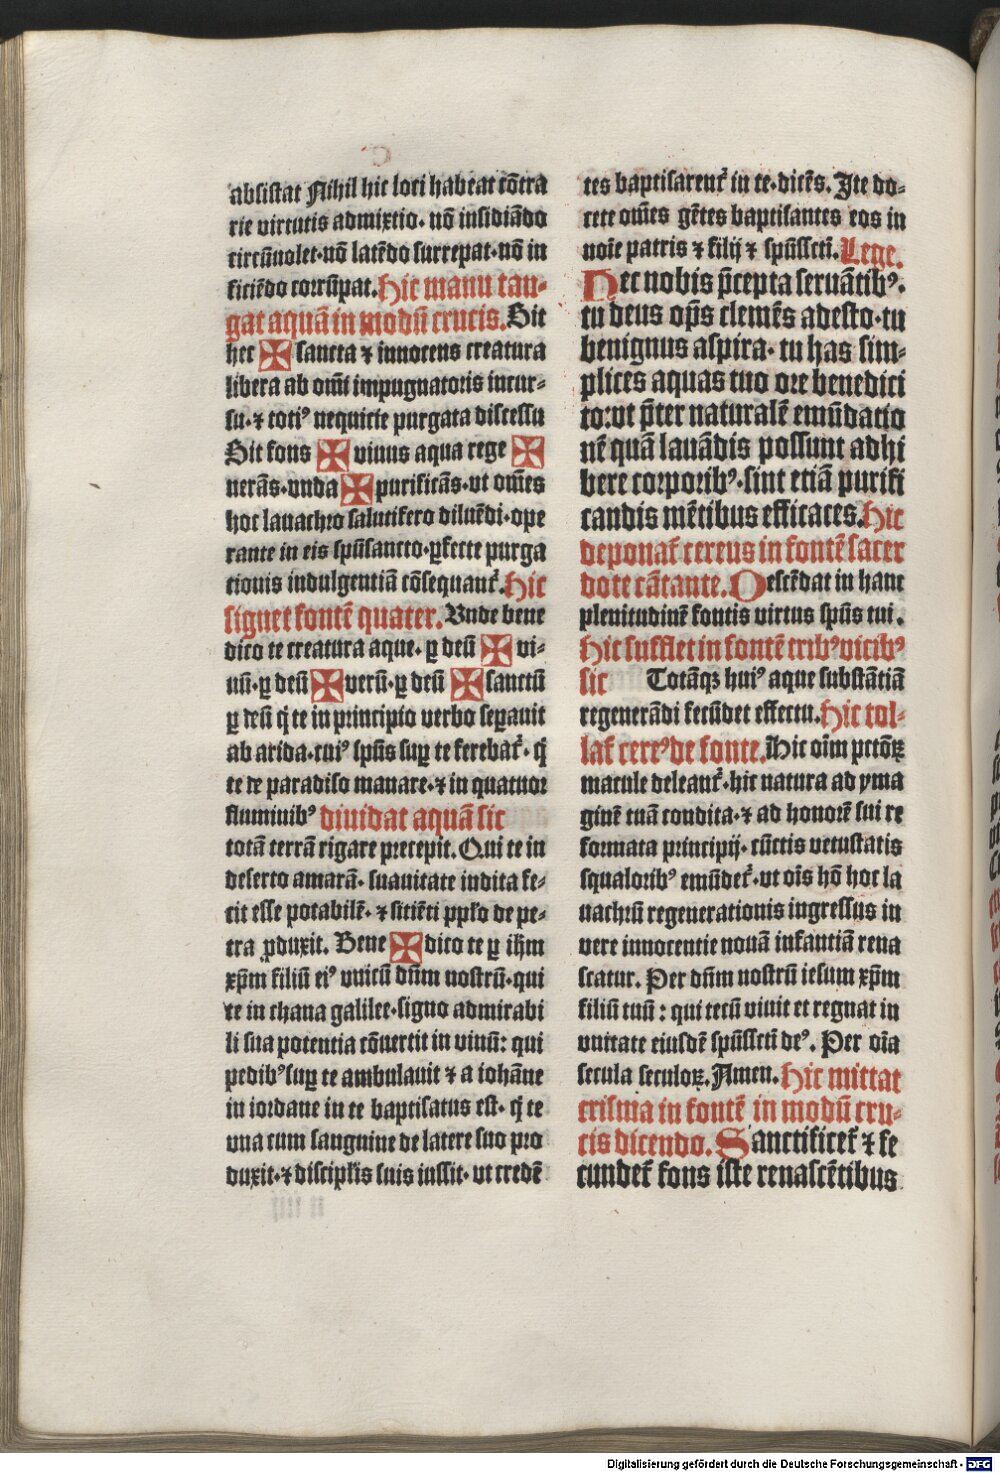 absistat Nihil hic loci habeat cōtra
rie virtutis admixtio. nō insidiādo
circūuolet. nō latēdo surrepat. nō in
ficiēdo corrūpat. Hic manu tan-
gat aquā in modū crucis. Sit
hec ✠ sancta ⁊ innocens creatura
libera ab om̄i impugnatoris incur-
su. ⁊ totiꝰ nequicie purgata discessu
Sit fons ✠ viuus aqua rege ✠
nerās. vnda ✠ purificās. vt om̄es
hoc lauachro salutifero diluēdi. ope
rante in eis spūsancto. ꝑfecte purga
tionis indulgentiā cōsequantᷣ. Hic
signet fontē quater. Vnde bene
dico te creatura aque. ꝑ deū ✠ vi-
uū. ꝑ deū ✠ verū. ꝑ deū ✠ sanctū
ꝑ deū q̇ te in principio verbo seꝑauit
ab arida. cuiꝰ spūs suꝑ te ferebatᷣ. q̇
te de paradiso manare. ⁊ in quatuor
fluminibꝰ diuidat aquā sic
totā terrā rigare precepit. Qui te in
deserto amarā. suauitate indita fe-
cit esse potabilē. ⁊ sitiēti ppl̄o de pe-
tra ꝓduxit. Bene ✠ dico te ꝑ ih̄m
xp̄m filiū eiꝰ vnicū dn̄m nostrū. qui
te in chana galilee. signo admirabi
li sua potentia cōuertit in vinū: qui
pedibꝰ suꝑ te ambulauit ⁊ a iohāne
in iordane in te baptisatus est. q̇ te
vna cum sanguine de latere suo pro
duxit. ⁊ discipl̄is suis iussit. vt credē
tes baptisarentᷣ in te. dicēs. Ite do-
cete om̄es gētes baptisantes eos in
noīe patris ⁊ filij ⁊ spūssctī. Lege.
Hec nobis p̄cepta seruātibꝰ.
tu deus op̄s clemēs adesto. tu
benignus aspira. tu has sim-
plices aquas tuo ore benedici
to: vt p̄ter naturalē emūdatio
nē quā lauādis possunt adhi
bere corporibꝰ. sint etiā purifi
candis mētibus efficaces. Hic
deponatᷣ cereus in fontē sacer
dote cātante. Descēdat in hanc
plenitudinē fontis virtus spūs tui.
Hic sufflet in fontē tribꝰ vicibꝰ
sic Totāqꝫ huiꝰ aque substātiā
regenerādi fecūdet effectu. Hic tol-
latᷣ cereꝰ de fonte. Hic oīm pctōꝝ
macule deleantᷣ. hic natura ad yma
ginē tuā condita. ⁊ ad honorē sui re
formata principij. cūctis vetustatis
squaloribꝰ emūdetᷣ. vt oīs hō hoc la
uachrū regenerationis ingressus in
vere innocentie nouā infantiā rena
scatur. Per dn̄m nostrū iesum xp̄m
filiū tuū: qui tecū viuit et regnat in
vnitate eiusdē spūssctī deꝰ. Per oīa
secula seculoꝝ. Amen. Hic mittat
crisma in fontē in modū cru-
cis dicendo. Sanctificetᷣ ⁊ fe
cundetᷣ fons iste renascētibus
Digitalisierung gefördert durch die Deutsche Forschungsgemeinschaft - DFG